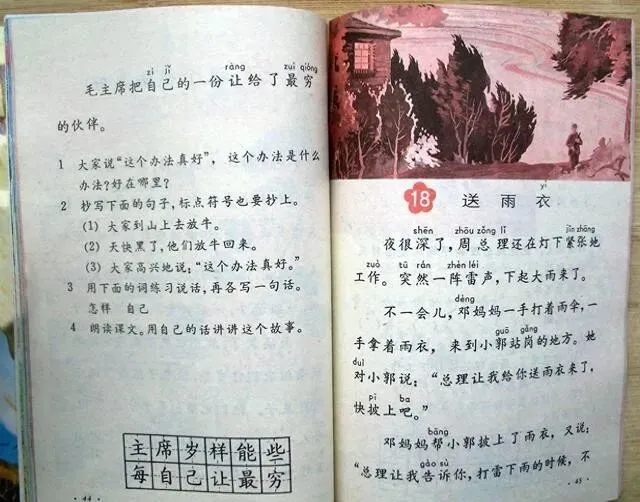 zì jǐ ràng zuì qióng
毛主席把自己的一份让给了最穷
的伙伴。
1 大家说“这个办法真好”,这个办法是什么
办法?好在哪里?
2 抄写下面的句子,标点符号也要抄上。
(1) 大家到山上去放牛。
(2) 天快黑了,他们放牛回来。
(3) 大家高兴地说:“这个办法真好。”
3 用下面的词练习说话,再各写一句话。
怎样 自己
4 朗读课文。用自己的话讲讲这个故事。
主席岁样能些
每自己让最穷
· 44 ·
yī
18 送雨衣
shēn zhōu zǒng lǐ jǐn zhāng
夜很深了,周总理还在灯下紧张地
zuò tū rán zhèn léi
工作。突然一阵雷声,下起大雨来了。
dèng
不一会儿,邓妈妈一手打着雨伞,一
guō gǎng
手拿着雨衣,来到小郭站岗的地方。她
duì
对小郭说:“总理让我给你送雨衣来了,
pī ba
快披上吧。”
bāng
邓妈妈帮小郭披上了雨衣,又说:
gào sù
“总理让我告诉你,打雷下雨的时候,不
· 45 ·